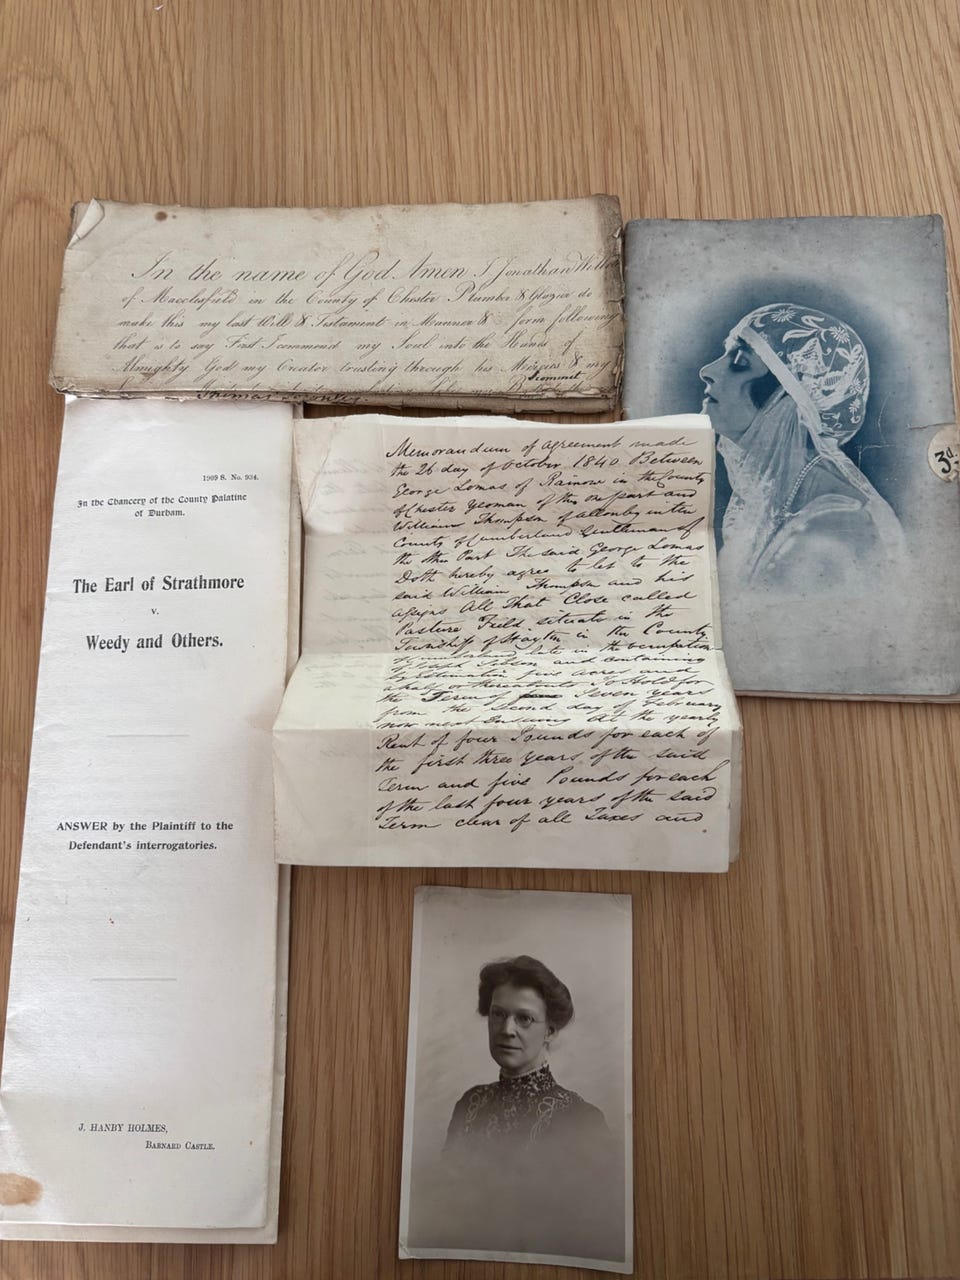 In the name of God Amen I Jonathan
of Macclesfield in the County of Chester Plumber & Glazier do
make this my last Will & Testament in Manner & form following
that is to say First I commend my Soul into the Hands of
Almighty God my Creator trusting through his Mercies & my
Thomas
3d.
1909 S. No. 934.
In the Chancery of the County Palatine
of Durham.
The Earl of Strathmore
v.
Weedy and Others.
ANSWER by the Plaintiff to the
Defendant's interrogatories.
J. HANBY HOLMES,
BARNARD CASTLE.
Memorandum of agreement made
the 26 day of October 1840 Between
George Lomas of Rainow in the County
of Chester yeoman of the one part and
William Thompson of Allonby in the
County of Cumberland Gentleman of
the other Part The said George Lomas
Doth hereby agree to let to the
said William Thompson and his
assigns All That Close called
Pasture Field situate in the
Township of Hayton in the County
of Cumberland late in the occupation
of Joseph and containing
by estimation five acres and
a half or thereabouts To Hold for
the Term of Seven years
from the second day of February
now next ensuing At the yearly
Rent of four Pounds for each of
the first three years of the said
Term and five Pounds for each
of the last four years of the said
Term clear of all Taxes and